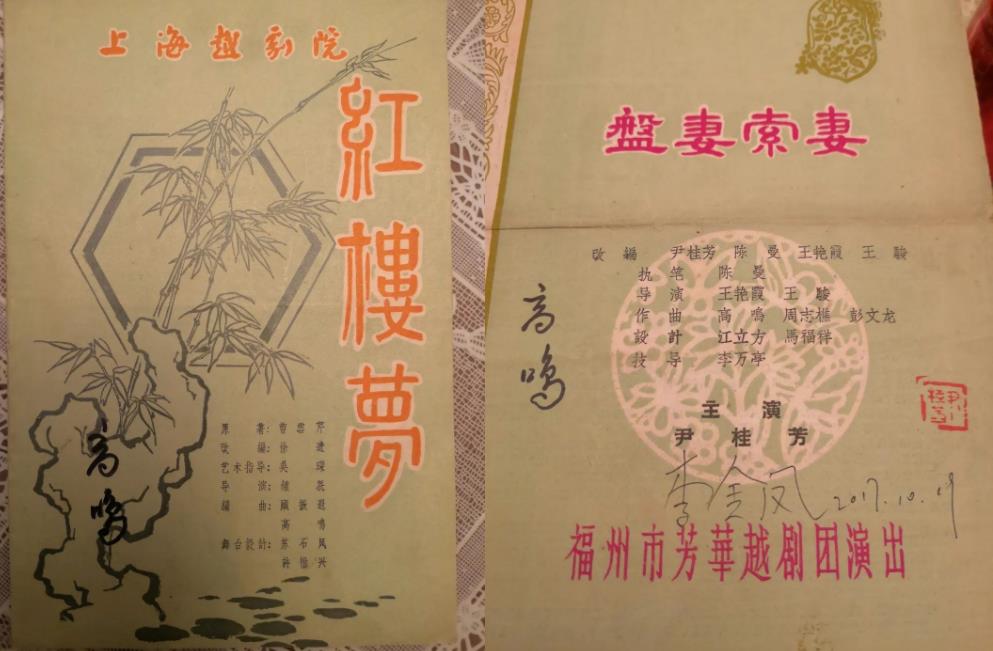 上海越剧院
紅樓夢
原著：曹雪芹
改編：徐進
艺术指导：吳琛
导演：鍾泯
編曲：顧振遐
高鳴
舞台設計：苏石風
許惟兴
高鳴
盤妻索妻
改編 尹桂芳 陈曼 王艳霞 王駿
执笔 陈曼
导演 王艳霞 王駿
作曲 高鳴 周志樵 彭文龙
設計 江立方 馬福祥
技导 李万亭
高鳴
主演
尹桂芳
李金凤 2017.10.19
福州市芳華越劇团演出